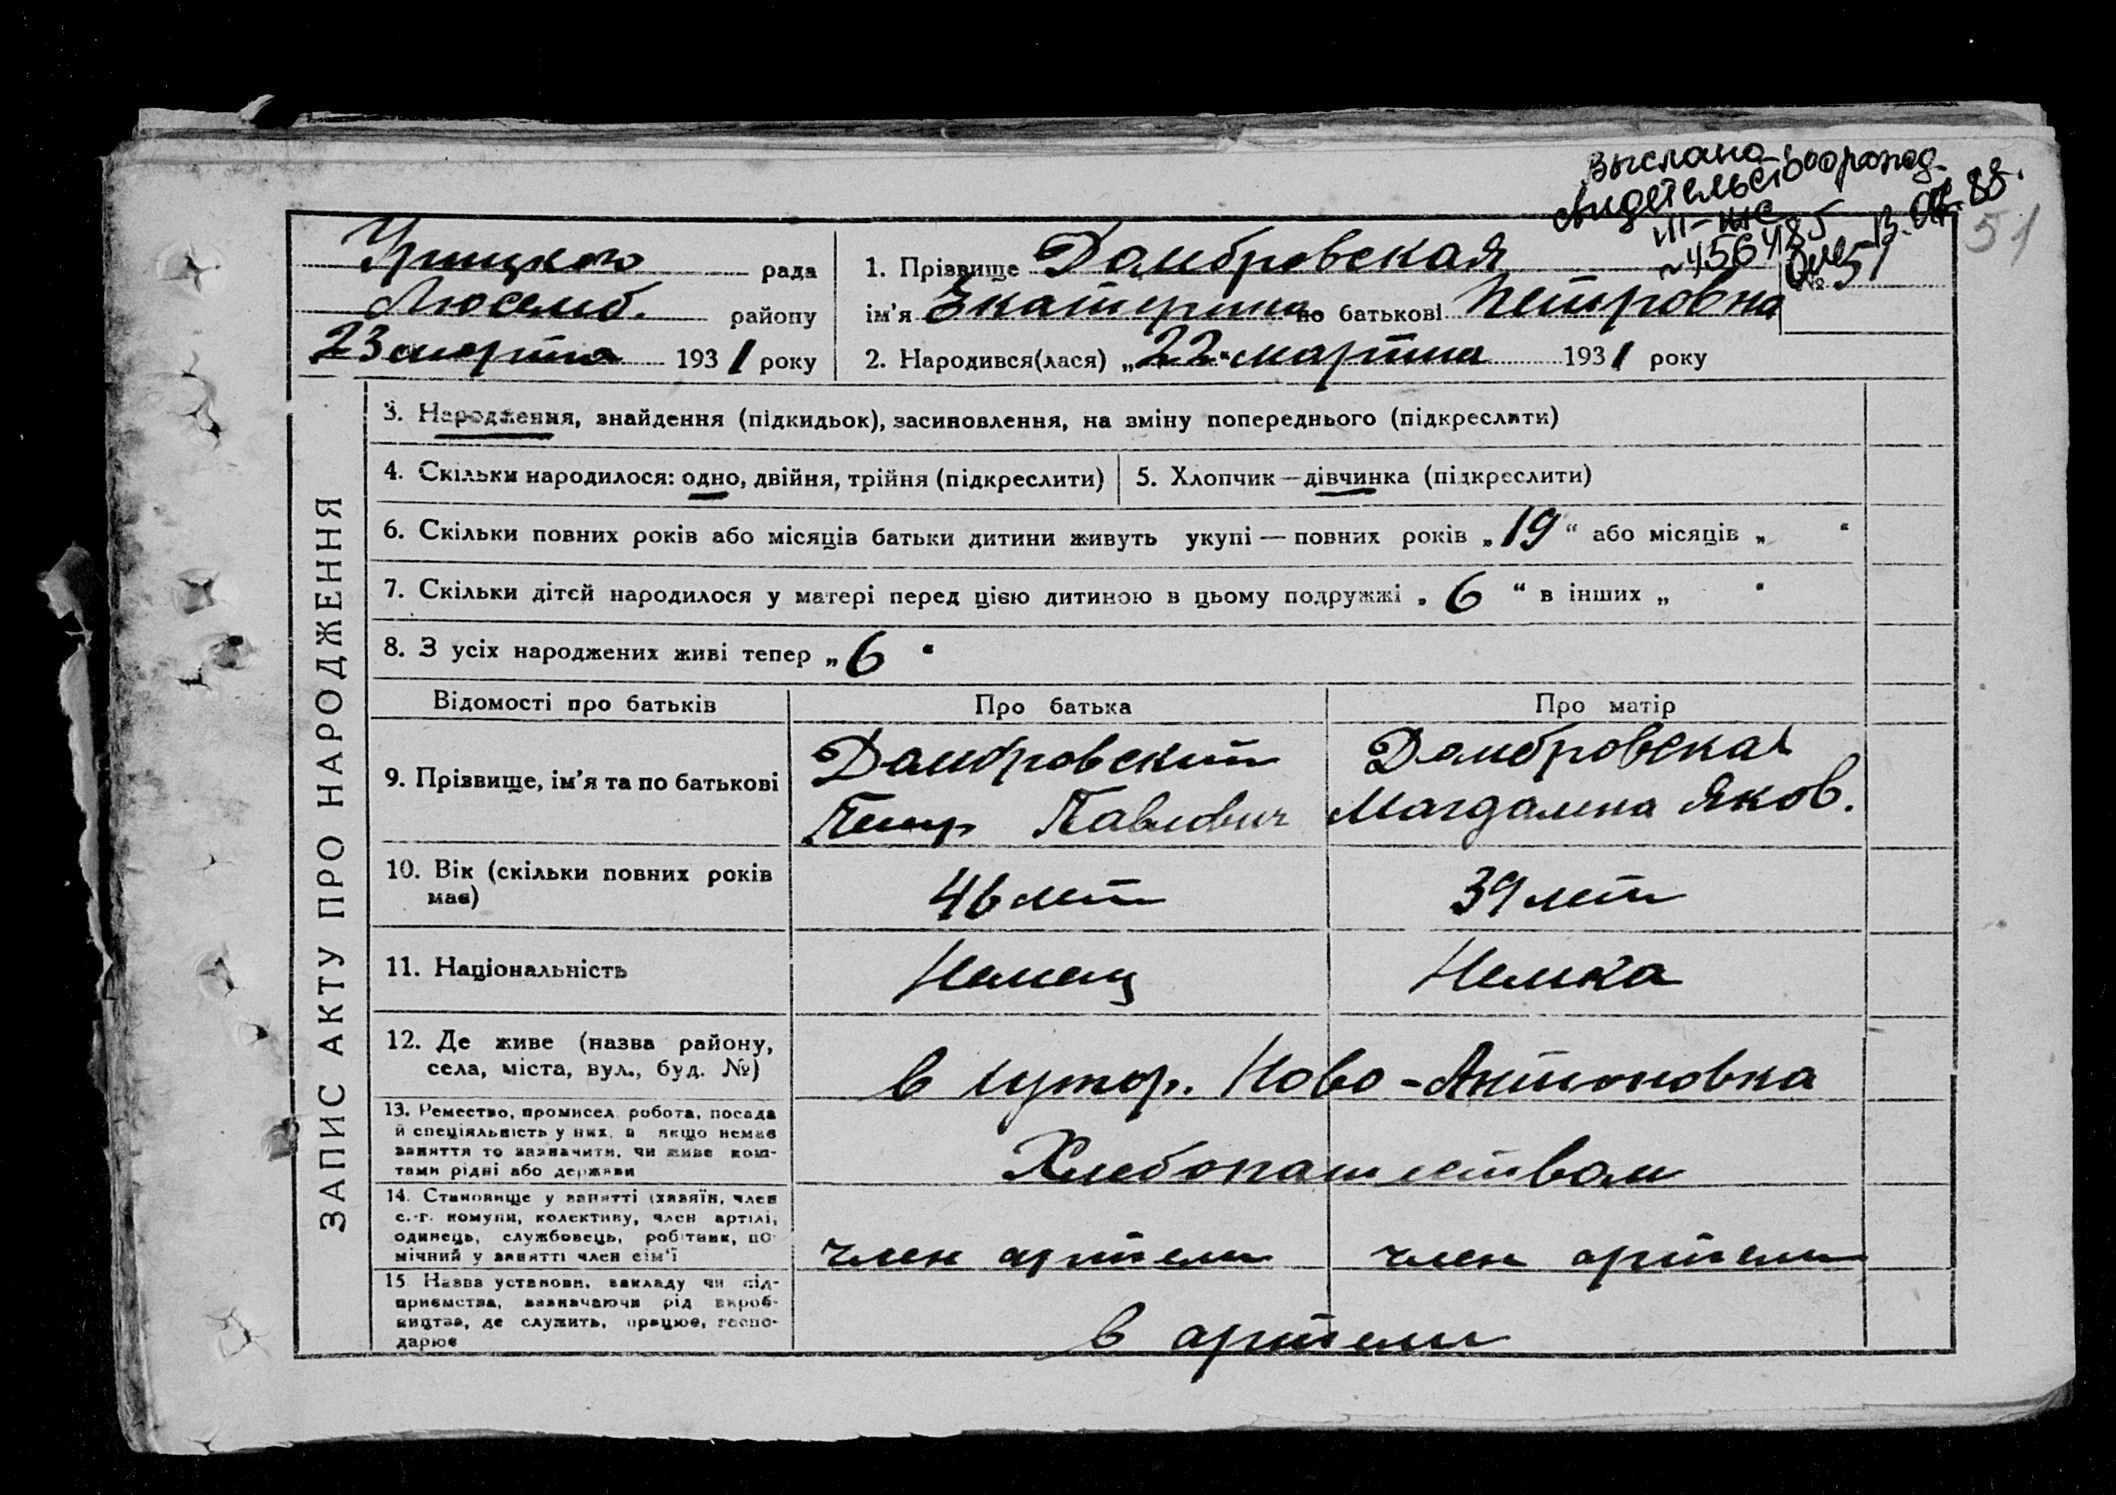 Выслано
свидетельство о рожд.
III-ЖС
№ 456485
51
Урицкого рада
Люксемб. району
23 марта 1931 року
1. Прізвище Домбровская
ім'я Екатерина по батькові Петровна
№ 51
2. Народився(лася) „22“ марта 1931 року
ЗАПИС АКТУ ПРО НАРОДЖЕННЯ
3. Народження, знайдення (підкидьок), засиновлення, на зміну попереднього (підкреслити)
4. Скільки народилося: одно, двійня, трійня (підкреслити)
5. Хлопчик — дівчинка (підкреслити)
6. Скільки повних років або місяців батьки дитини живуть укупі — повних років „19“ або місяців „ “
7. Скільки дітей народилося у матері перед цією дитиною в цьому подружжі „6“ в інших „ “
8. З усіх народжених живі тепер „6“
Відомості про батьків
Про батька
Про матір
9. Прізвище, ім'я та по батькові
Домбровский
Петр Павлович
Домбровская
Магдалина Яков.
10. Вік (скільки повних років
має)
46 лет
39 лет
11. Національність
Немец
Немка
12. Де живе (назва району,
села, міста, вул., буд. №)
в хутор. Ново-Антоновка
13. Ремество, промисел, робота, посада
й спеціяльність у них, а якщо немає
заняття то зазначити, чи живе кош-
тами рідні або держави
Хлебопашеством
14. Становище у занятті (хазяїн, член
с.-г. комуни, колективу, член артілі,
одинець, службовець, робітник, по-
мічний у занятті член сім'ї
член артели
член артели
15. Назва установи, закладу чи під-
приємства, зазначаючи рід вироб-
ництва, де служить, працює, госпо-
дарює
в артели